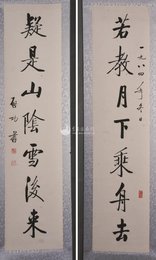 若教月下乘舟去
一九八四年春日
疑是山陰雪後来
启功書